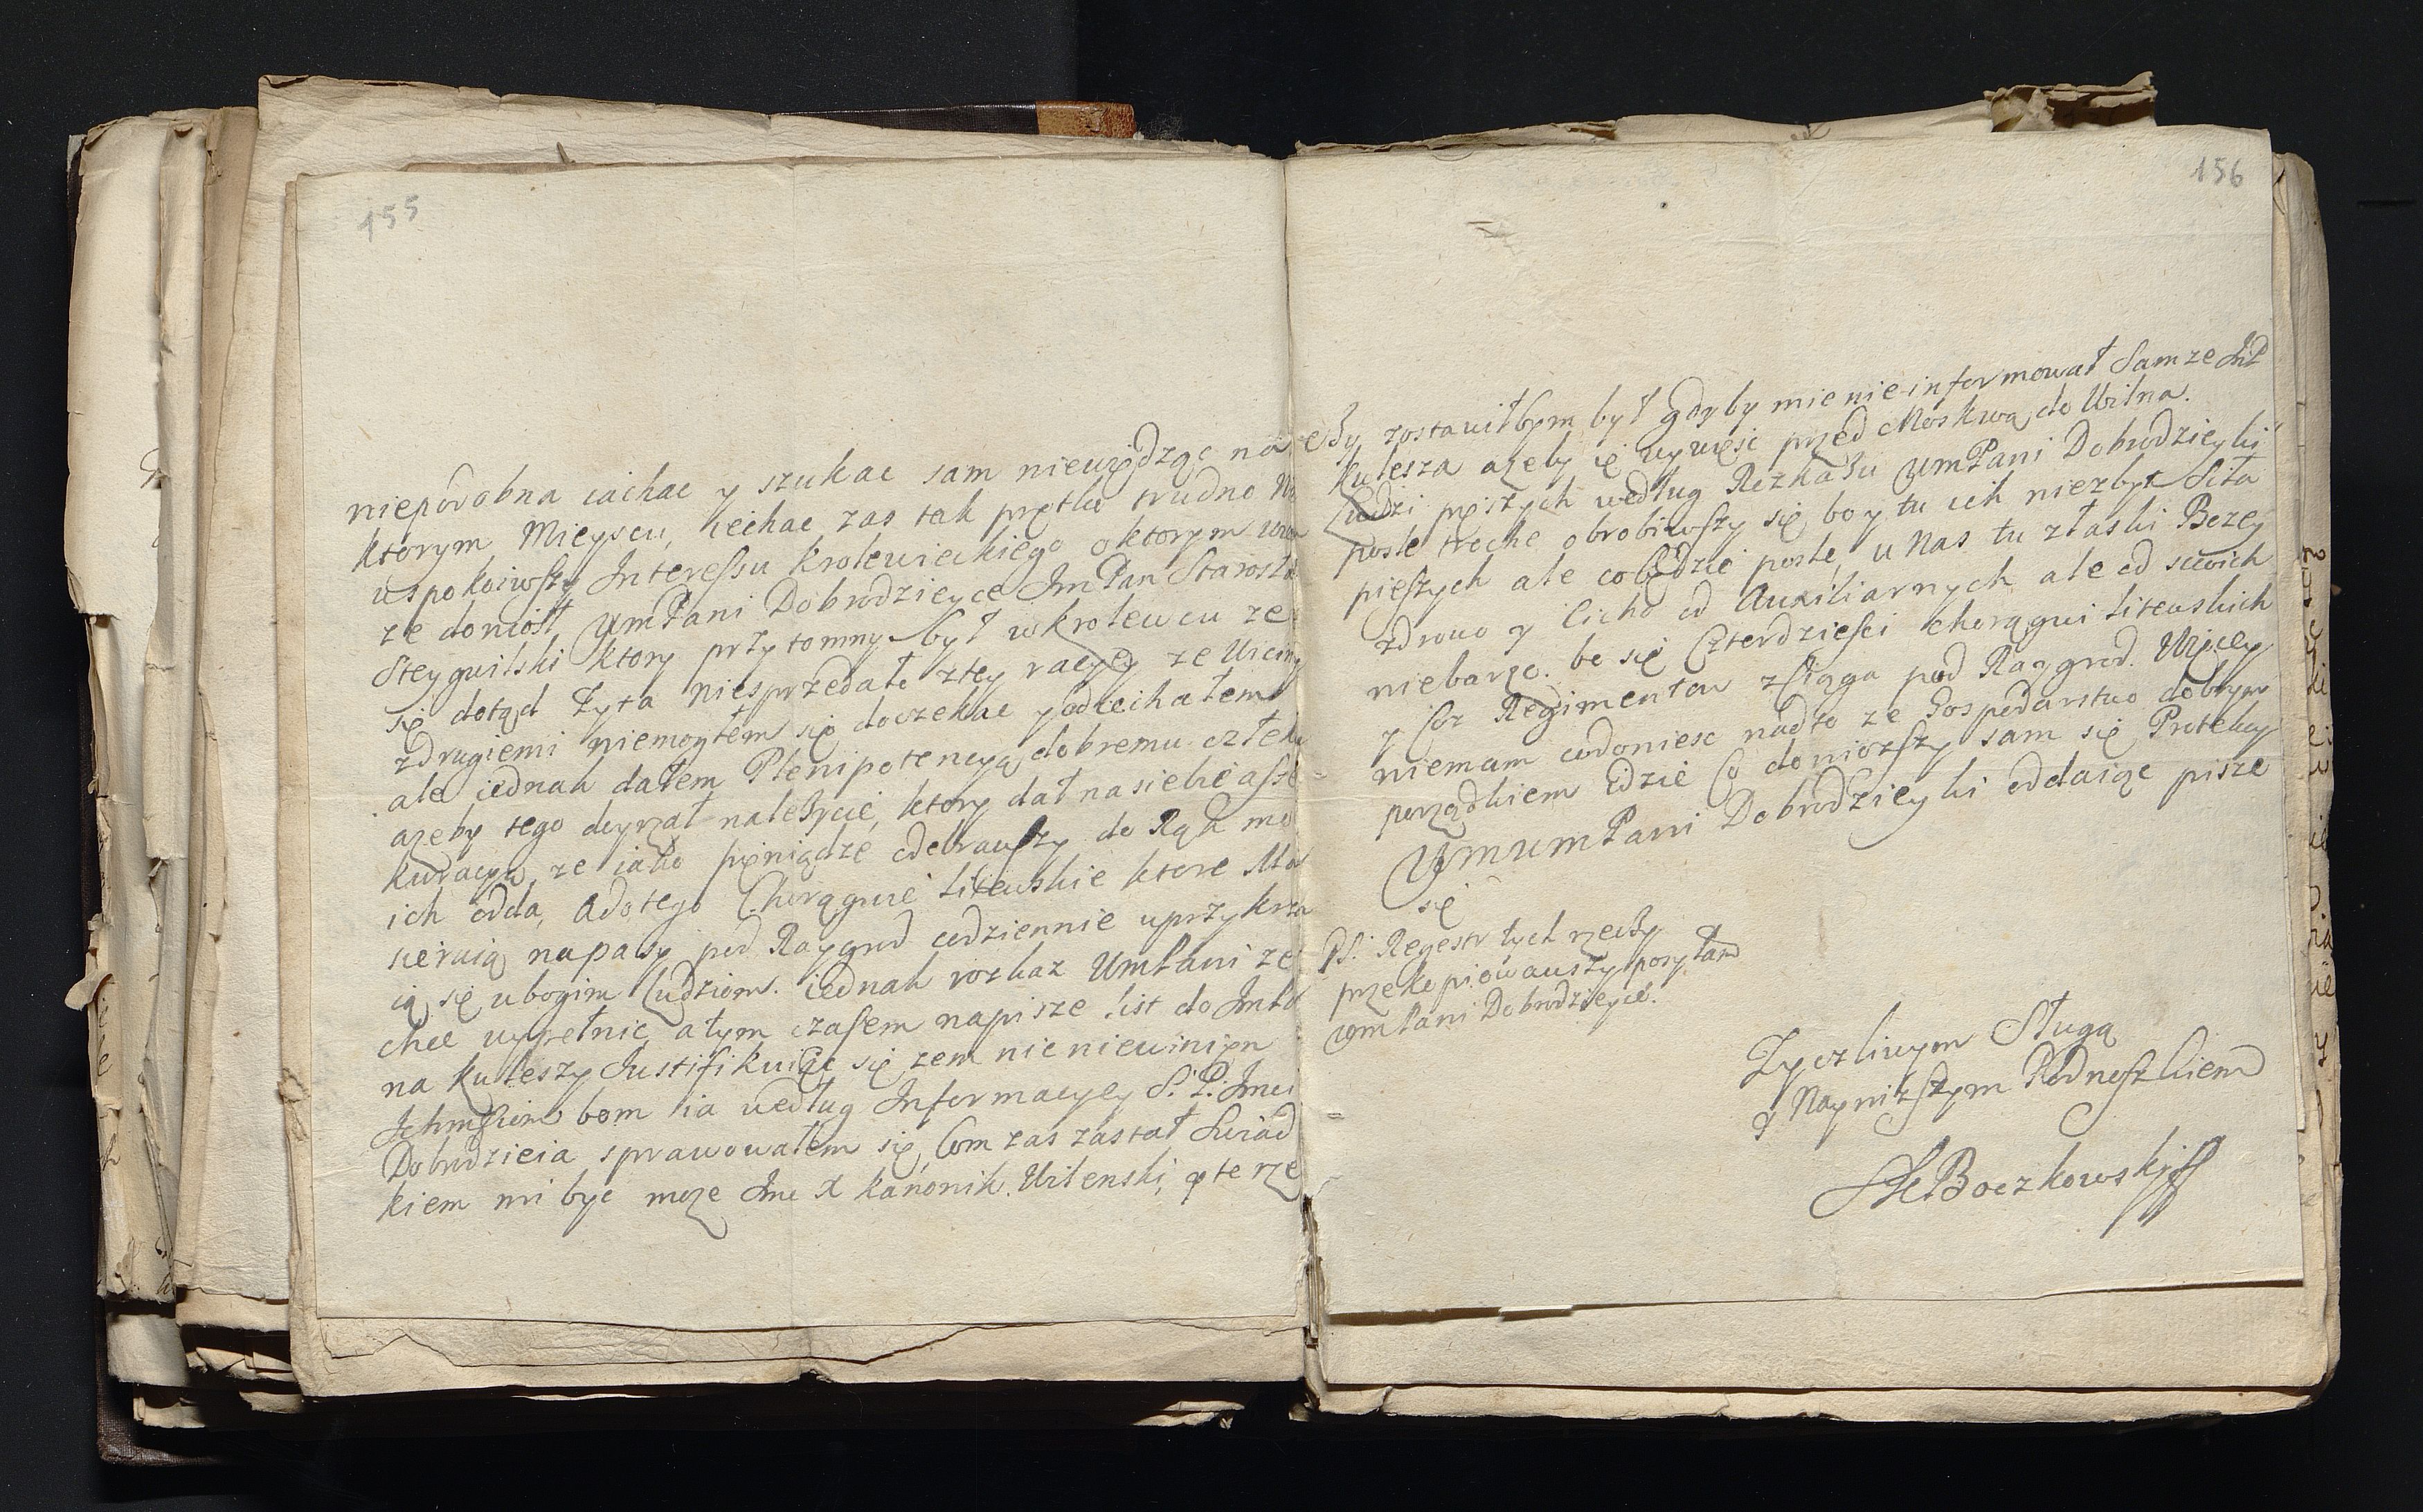 155
niepodobna iachac y szukac sam niewiedząc na
ktorym Mieyscu, iechac zas tak prętko trudno
uspokoiwszy Interessu krolewieckiego o ktorym
ze doniosł WmPani Dobrodzieyce ImPan Starosta
Steygwilski ktory przytomny był w krolewcu ze
się dotąd Zyta niesprzedało z tey racyey ze Wiciny
z drugiemi niemogłem się doczekac y odiechałem
ale iednak dałem Plenipotencyą dobremu człeku
azeby tego doyrzał nalezycie, ktory dał na siebie asse
kuracyą, ze iako pieniądze odebrawszy do Rąk mo
ich odda, Ado tego Chorągwie Litewskie ktore
sciaią napasy pod Raygrod codziennie uprzykrza
ią się ubogim Ludziom. iednak rozkaz WmPani ze
chce wypełnic, a tym czasem napisze list do
na kuleszy Justifikuiąc się zem nie niewinien
bom ia według Informacyey S. P. Jmci
Dobrodzieia sprawowałem się, Com zas zastał Swiad
kiem mi byc moze Jmc X kanonik Wilenski, te rze
156
czy zostawiłbym był gdyby mie nie informował Sam ze
kulesza azeby ie wywiesc przed Moskwą do Wilna.
Ludzi pieszych według Rozkazu WmPani Dobrodzieyki
posle troche obrobiwszy się bo y tu ich niezbyt Siła
pieszych ale co będzie posle, u Nas tu z łaski Bozey
zdrowo y Cicho od Auxiliarnych ale od swoich
niebarzo. bo się Czterdziesci Chorągwi Litewskich
y Regimentow zciąga pod Raygrod. Więcey
niemam co doniesc nadto ze Gospodarstwo dobrym
porządkiem idzie Co doniozszy sam się Protekcy
WmumPani Dobrodzieyki oddaiąc pisze
się
PS. Regestr tych rzeczy
przekopiowawszy posyłam
WmPani Dobrodzieyce.
Zyczliwym Sługą
y Naynizszym Podnoszkiem
Boczkowski